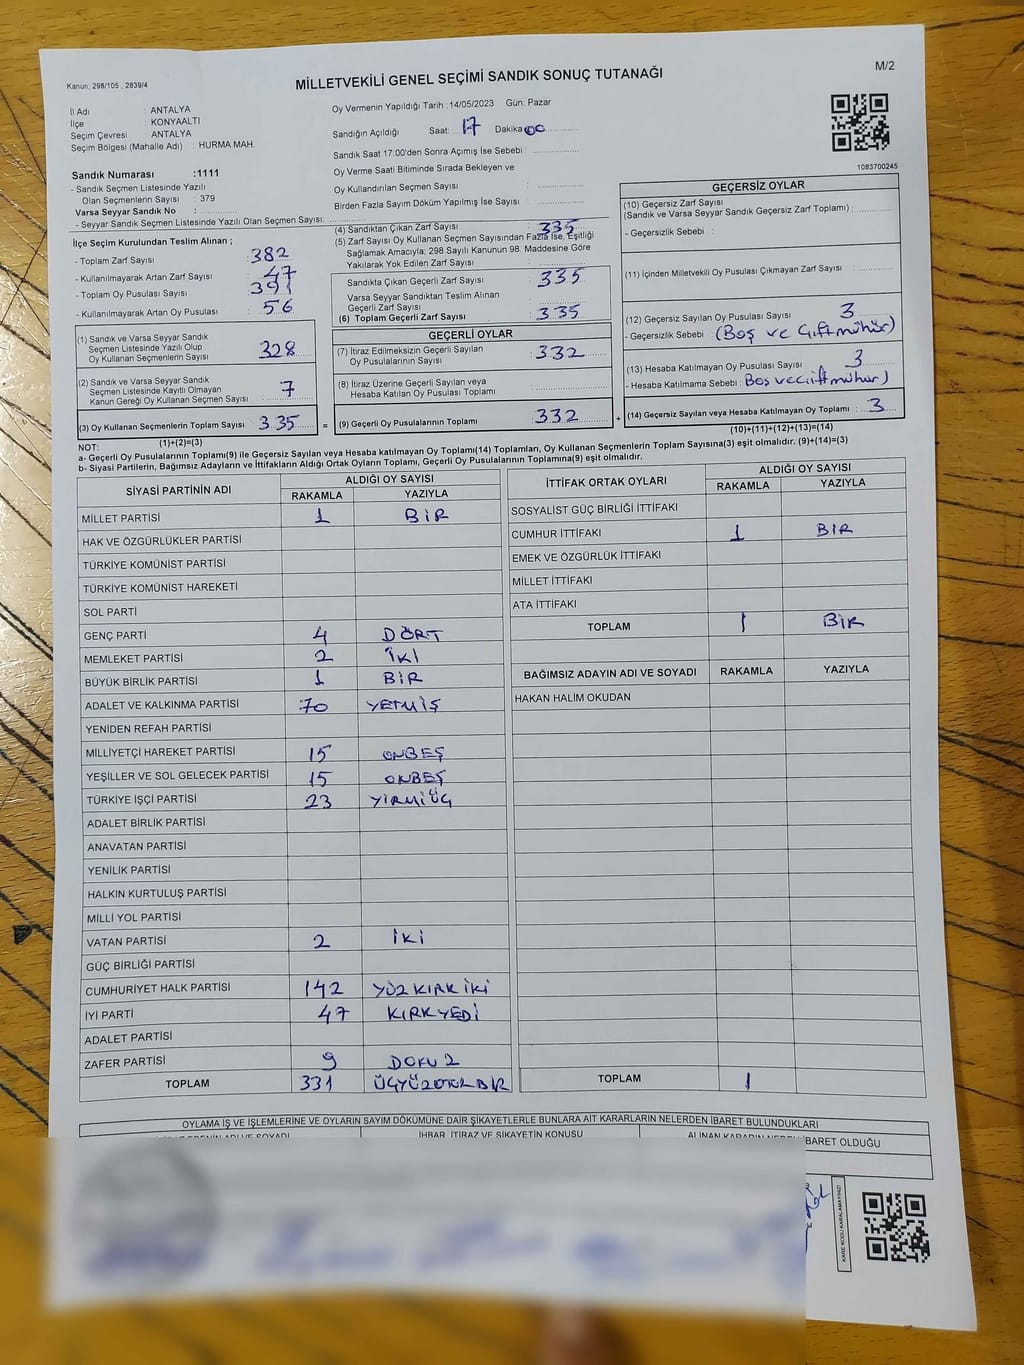 Kanun; 298/105 , 2839/4
MİLLETVEKİLİ GENEL SEÇİMİ SANDIK SONUÇ TUTANAĞI
M/2
İl Adı : ANTALYA
İlçe : KONYAALTI
Seçim Çevresi : ANTALYA
Seçim Bölgesi (Mahalle Adı) : HURMA MAH.
Oy Vermenin Yapıldığı Tarih :14/05/2023 Gün: Pazar
Sandığın Açıldığı Saat: 17 Dakika 00
Sandık Saat 17:00'den Sonra Açımış İse Sebebi :
Oy Verme Saati Bitiminde Sırada Bekleyen ve
Oy Kullandırılan Seçmen Sayısı :
Birden Fazla Sayım Döküm Yapılmış İse Sayısı :
1083700245
Sandık Numarası :1111
- Sandık Seçmen Listesinde Yazılı
Olan Seçmenlerin Sayısı : 379
Varsa Seyyar Sandık No :
- Seyyar Sandık Seçmen Listesinde Yazılı Olan Seçmen Sayısı:
İlçe Seçim Kurulundan Teslim Alınan ;
- Toplam Zarf Sayısı : 382
- Kullanılmayarak Artan Zarf Sayısı : 47
- Toplam Oy Pusulası Sayısı : 391
- Kullanılmayarak Artan Oy Pusulası : 56
(1) Sandık ve Varsa Seyyar Sandık
Seçmen Listesinde Yazılı Olup
Oy Kullanan Seçmenlerin Sayısı : 328
(2) Sandık ve Varsa Seyyar Sandık
Seçmen Listesinde Kayıtlı Olmayan
Kanun Gereği Oy Kullanan Seçmen Sayısı : 7
(3) Oy Kullanan Seçmenlerin Toplam Sayısı : 335
(1)+(2)=(3)
(4) Sandıktan Çıkan Zarf Sayısı : 335
(5) Zarf Sayısı Oy Kullanan Seçmen Sayısından Fazla İse, Eşitliği
Sağlamak Amacıyla; 298 Sayılı Kanunun 98. Maddesine Göre
Yakılarak Yok Edilen Zarf Sayısı :
Sandıkta Çıkan Geçerli Zarf Sayısı : 335
Varsa Seyyar Sandıktan Teslim Alınan
Geçerli Zarf Sayısı :
(6) Toplam Geçerli Zarf Sayısı : 335
GEÇERLİ OYLAR
(7) İtiraz Edilmeksizin Geçerli Sayılan
Oy Pusulalarının Sayısı : 332
(8) İtiraz Üzerine Geçerli Sayılan veya
Hesaba Katılan Oy Pusulası Toplamı :
= (9) Geçerli Oy Pusulalarının Toplamı : 332
GEÇERSİZ OYLAR
(10) Geçersiz Zarf Sayısı
(Sandık ve Varsa Seyyar Sandık Geçersiz Zarf Toplamı) :
- Geçersizlik Sebebi :
(11) İçinden Milletvekili Oy Pusulası Çıkmayan Zarf Sayısı :
(12) Geçersiz Sayılan Oy Pusulası Sayısı : 3
- Geçersizlik Sebebi : (Boş ve Çift mühür)
(13) Hesaba Katılmayan Oy Pusulası Sayısı : 3
- Hesaba Katılmama Sebebi : Boş ve çift mühür)
+ (14) Geçersiz Sayılan veya Hesaba Katılmayan Oy Toplamı : 3
(10)+(11)+(12)+(13)=(14)
NOT:
a- Geçerli Oy Pusulalarının Toplamı(9) ile Geçersiz Sayılan veya Hesaba katılmayan Oy Toplamı(14) Toplamları, Oy Kullanan Seçmenlerin Toplam Sayısına(3) eşit olmalıdır. (9)+(14)=(3)
b- Siyasi Partilerin, Bağımsız Adayların ve İttifakların Aldığı Ortak Oyların Toplamı, Geçerli Oy Pusulalarının Toplamına(9) eşit olmalıdır.
SİYASİ PARTİNİN ADI ALDIĞI OY SAYISI
RAKAMLA YAZIYLA
MİLLET PARTİSİ 1 BİR
HAK VE ÖZGÜRLÜKLER PARTİSİ
TÜRKİYE KOMÜNİST PARTİSİ
TÜRKİYE KOMÜNİST HAREKETİ
SOL PARTİ
GENÇ PARTİ 4 DÖRT
MEMLEKET PARTİSİ 2 İKİ
BÜYÜK BİRLİK PARTİSİ 1 BİR
ADALET VE KALKINMA PARTİSİ 70 YETMİŞ
YENİDEN REFAH PARTİSİ
MİLLİYETÇİ HAREKET PARTİSİ 15 ONBEŞ
YEŞİLLER VE SOL GELECEK PARTİSİ 15 ONBEŞ
TÜRKİYE İŞÇİ PARTİSİ 23 YİRMİÜÇ
ADALET BİRLİK PARTİSİ
ANAVATAN PARTİSİ
YENİLİK PARTİSİ
HALKIN KURTULUŞ PARTİSİ
MİLLİ YOL PARTİSİ
VATAN PARTİSİ 2 İKİ
GÜÇ BİRLİĞİ PARTİSİ
CUMHURİYET HALK PARTİSİ 142 YÜZ KIRK İKİ
İYİ PARTİ 47 KIRKYEDİ
ADALET PARTİSİ
ZAFER PARTİSİ 9 DOKUZ
TOPLAM 331 ÜÇYÜZOTUZBİR
İTTİFAK ORTAK OYLARI ALDIĞI OY SAYISI
RAKAMLA YAZIYLA
SOSYALİST GÜÇ BİRLİĞİ İTTİFAKI
CUMHUR İTTİFAKI 1 BİR
EMEK VE ÖZGÜRLÜK İTTİFAKI
MİLLET İTTİFAKI
ATA İTTİFAKI
TOPLAM 1 BİR
BAĞIMSIZ ADAYIN ADI VE SOYADI RAKAMLA YAZIYLA
HAKAN HALİM OKUDAN
TOPLAM 1
OYLAMA İŞ VE İŞLEMLERİNE VE OYLARIN SAYIM DÖKÜMÜNE DAİR ŞİKAYETLERLE BUNLARA AİT KARARLARIN NELERDEN İBARET BULUNDUKLARI
İHBAR, İTİRAZ VE ŞİKAYETİN KONUSU
ALINAN KARARIN NEDEN İBARET OLDUĞU
KARE KODU KARALAMAYINIZ!